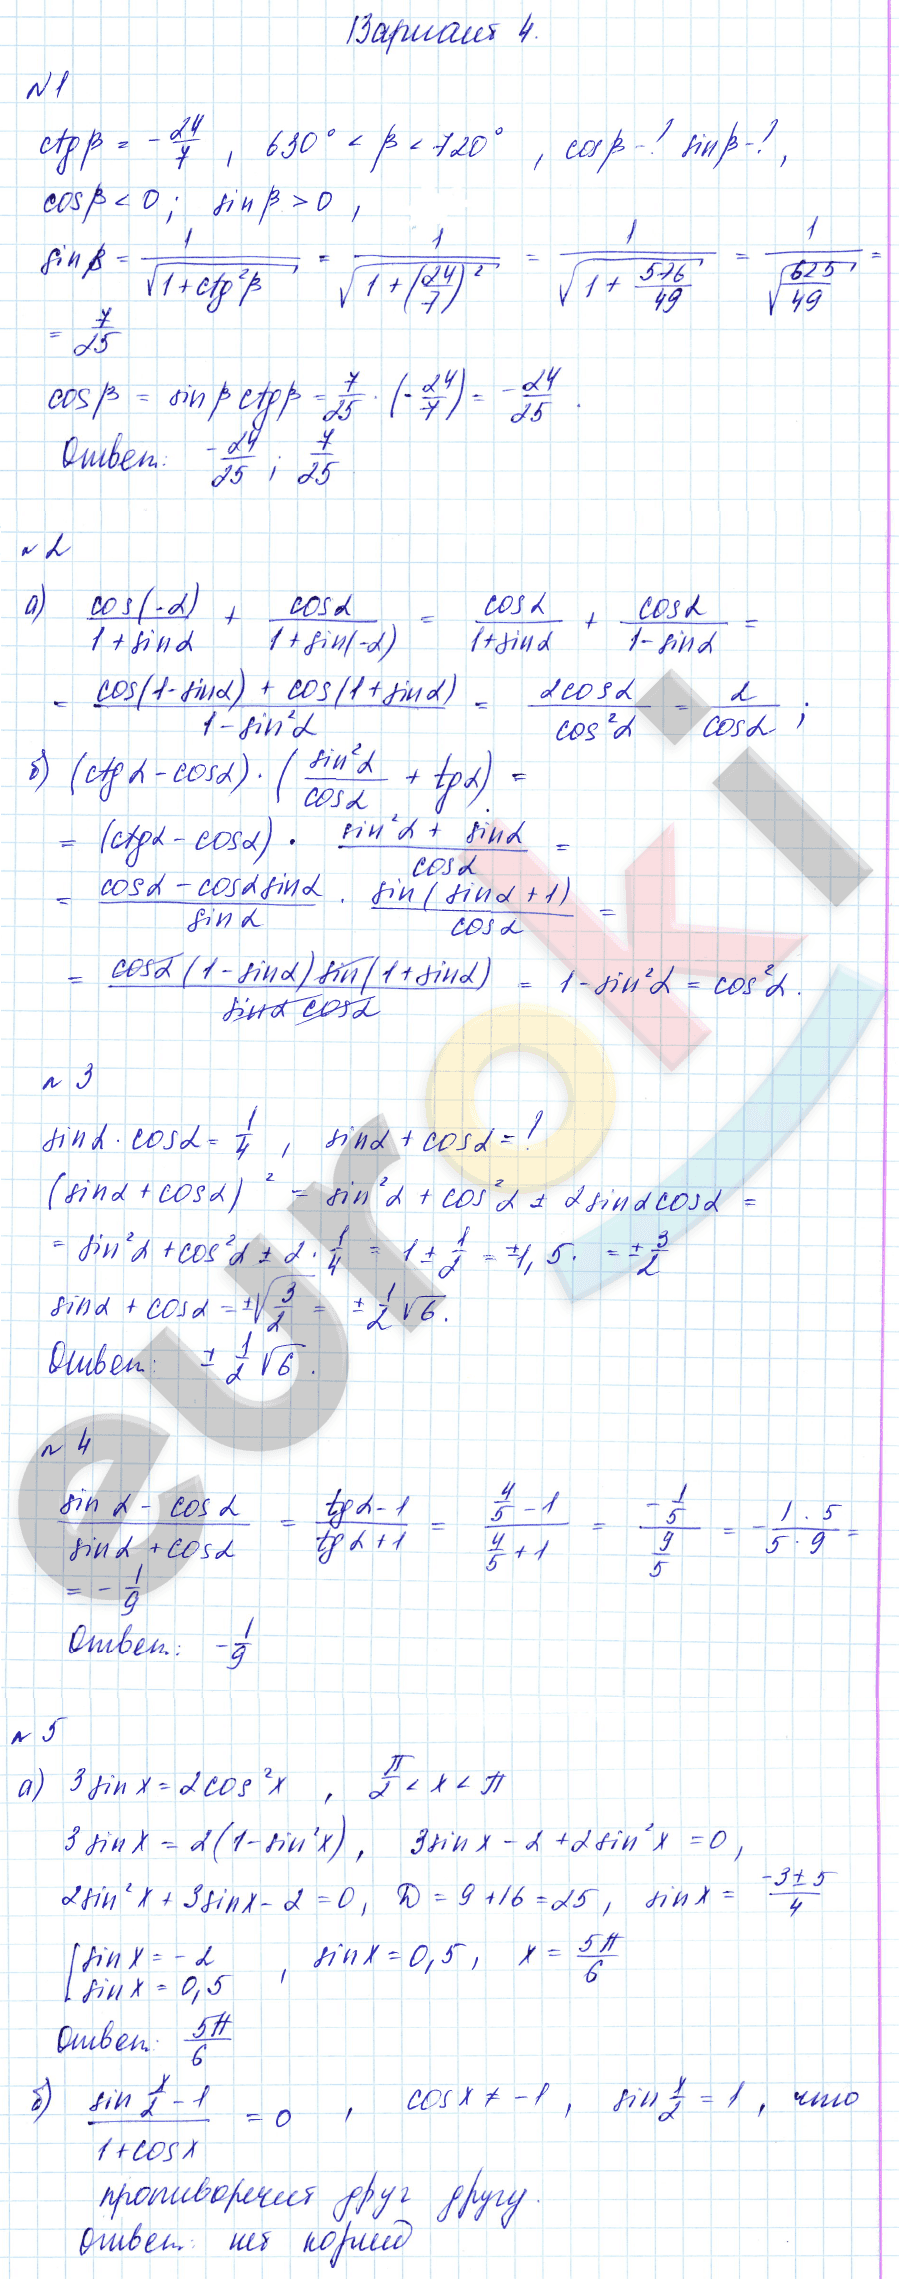 Вариант 4.
№1
ctgβ = -24/7 , 630° < β < 720° , cosβ-? sinβ-?,
cosβ < 0; sinβ > 0 ,
sinβ = 1/√(1+ctg²β) = 1/√(1+(24/7)²) = 1/√(1+576/49) = 1/√(625/49) =
= 7/25
cosβ = sinβ ctgβ = 7/25 · (-24/7) = -24/25 .
Ответ: -24/25 ; 7/25
№2
а) cos(-α)/(1+sinα) + cosα/(1+sin(-α)) = cosα/(1+sinα) + cosα/(1-sinα) =
= (cos(1-sinα) + cos(1+sinα))/(1-sin²α) = 2cosα/cos²α = 2/cosα ;
б) (ctgα - cosα) · (sin²α/cosα + tgα) =
= (ctgα - cosα) · (sin²α + sinα)/cosα =
= (cosα - cosα sinα)/sinα · sin(sinα+1)/cosα =
= cosα(1-sinα) sin(1+sinα)/(sinα cosα) = 1-sin²α = cos²α.
№3
sinα · cosα = 1/4 , sinα + cosα = ?
(sinα + cosα)² = sin²α + cos²α ± 2sinαcosα =
= sin²α + cos²α ± 2 · 1/4 = 1 ± 1/2 = ±1,5. = ± 3/2
sinα + cosα = ±√(3/2) = ± 1/2 √6.
Ответ: ± 1/2 √6 .
№4
(sinα - cosα)/(sinα + cosα) = (tgα-1)/(tgα+1) = (4/5 - 1)/(4/5 + 1) = (-1/5)/(9/5) = -(1·5)/(5·9) =
= -1/9
Ответ: -1/9
№5
а) 3sinx = 2cos²x , π/2 < x < π
3sinx = 2(1-sin²x), 3sinx - 2 + 2sin²x = 0,
2sin²x + 3sinx - 2 = 0, D = 9+16 = 25, sinx = (-3±5)/4
[sinx = -2
sinx = 0,5 , sinx = 0,5, x = 5π/6
Ответ: 5π/6
б) (sin x/2 - 1)/(1+cosx) = 0 , cosx ≠ -1, sin x/2 = 1, что
противоречит друг другу.
Ответ: нет корней
euroki